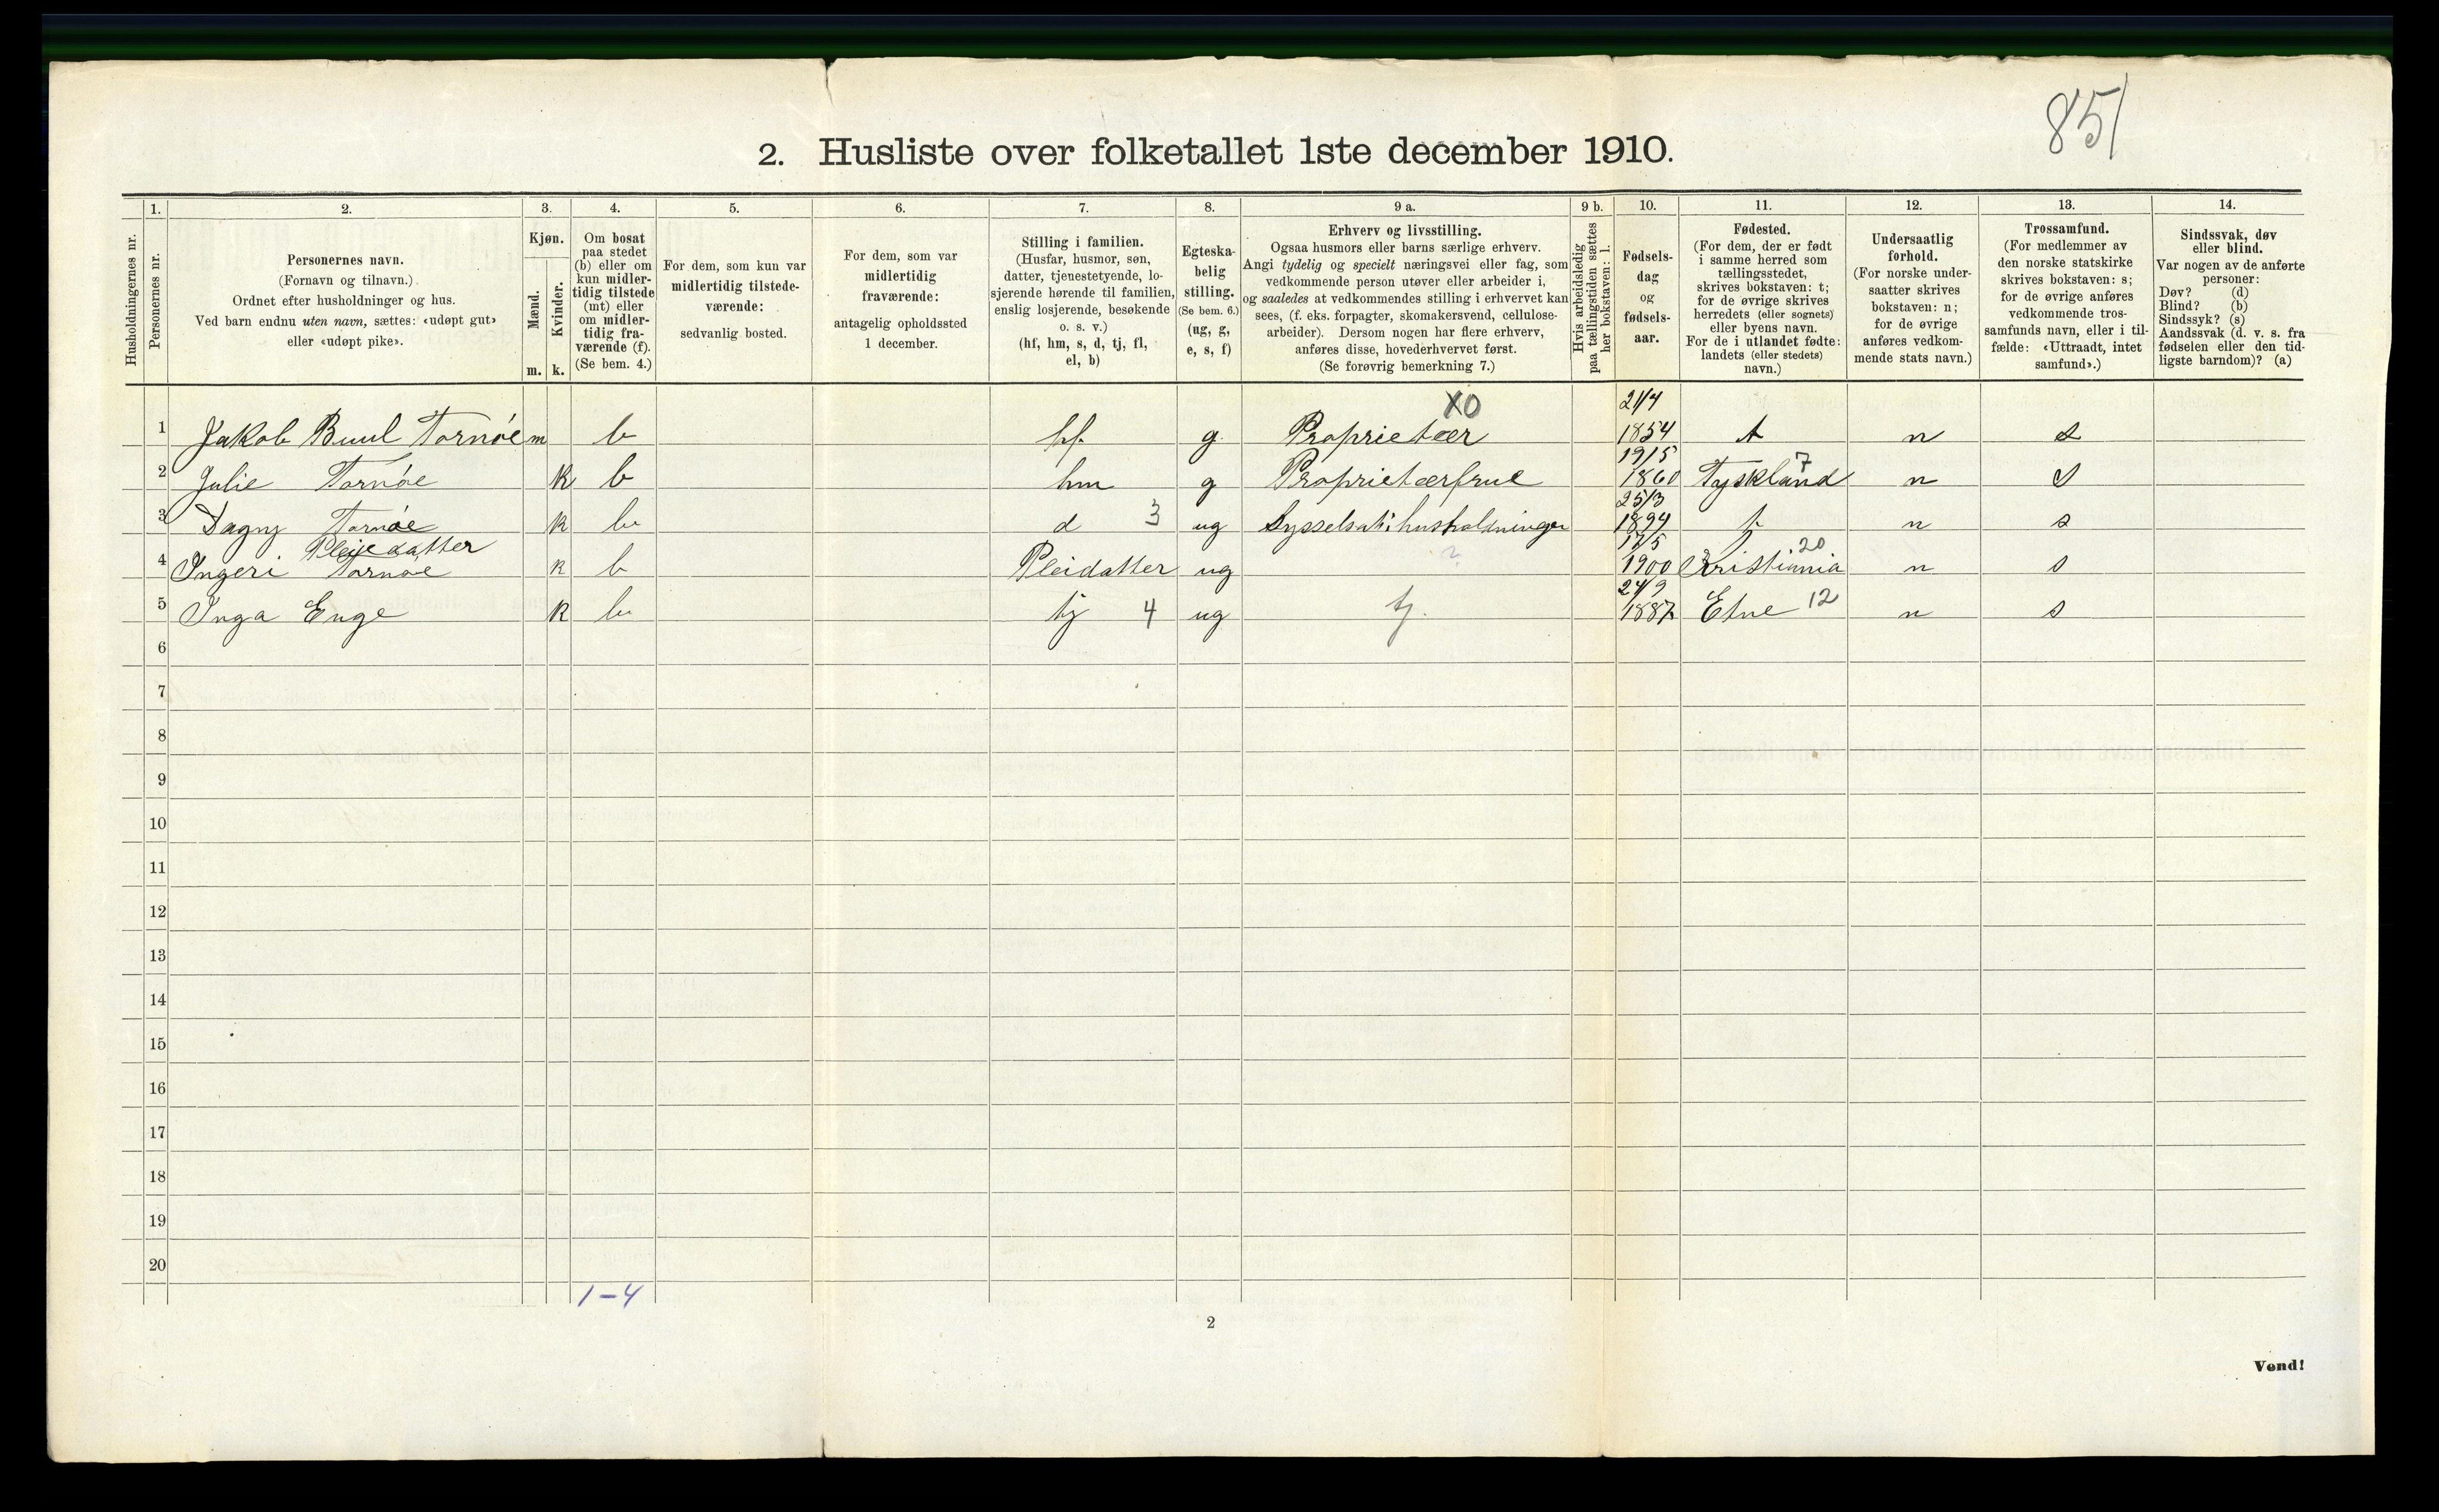 851
2. Husliste over folketallet 1ste december 1910.
Husholdningernes nr.
1.
Personernes nr.
2.
Personernes navn.
(Fornavn og tilnavn.)
Ordnet efter husholdninger og hus.
Ved barn endnu uten navn, sættes: «udøpt gut»
eller «udøpt pike».
3.
Kjøn.
Mænd.
Kvinder.
m. k.
4.
Om bosat
paa stedet
(b) eller om
kun midler-
tidig tilstede
(mt) eller
om midler-
tidig fra-
værende (f).
(Se bem. 4.)
5.
For dem, som kun var
midlertidig tilstede-
værende:
sedvanlig bosted.
6.
For dem, som var
midlertidig
fraværende:
antagelig opholdssted
1 december.
7.
Stilling i familien.
(Husfar, husmor, søn,
datter, tjenestetyende, lo-
sjerende hørende til familien,
enslig losjerende, besøkende
o. s. v.)
(hf, hm, s, d, tj, fl,
el, b)
8.
Egteska-
belig
stilling.
(Se bem. 6.)
(ug, g,
e, s, f)
9 a.
Erhverv og livsstilling.
Ogsaa husmors eller barns særlige erhverv.
Angi tydelig og specielt næringsvei eller fag, som
vedkommende person utøver eller arbeider i,
og saaledes at vedkommendes stilling i erhvervet kan
sees, (f. eks. forpagter, skomakersvend, cellulose-
arbeider). Dersom nogen har flere erhverv,
anføres disse, hovederhvervet først.
(Se forøvrig bemerkning 7.)
9 b.
Hvis arbeidsledig
paa tællingstiden sættes
her bokstaven: l.
10.
Fødsels-
dag
og
fødsels-
aar.
11.
Fødested.
(For dem, der er født
i samme herred som
tællingsstedet,
skrives bokstaven: t;
for de øvrige skrives
herredets (eller sognets)
eller byens navn.
For de i utlandet fødte:
landets (eller stedets)
navn.)
12.
Undersaatlig
forhold.
(For norske under-
saatter skrives
bokstaven: n;
for de øvrige
anføres vedkom-
mende stats navn.)
13.
Trossamfund.
(For medlemmer av
den norske statskirke
skrives bokstaven: s;
for de øvrige anføres
vedkommende tros-
samfunds navn, eller i til-
fælde: «Uttraadt, intet
samfund».)
14.
Sindssvak, døv
eller blind.
Var nogen av de anførte
personer:
Døv? (d)
Blind? (b)
Sindssyk? (s)
Aandssvak (d. v. s. fra
fødselen eller den tid-
ligste barndom)? (a)
X0 21/4
1 Jakob Buul Tornøe m b hf. g. Proprietær 1854 t n s
19/5
2 Julie Tornøe k b hm g Proprietærfrue 1860 Tyskland 7 n s
25/3
3 Dagny Tornøe k b d 3 ug Sysselsat i husholdningen 1894 t n s
Pleiedatter 17/5
4 Ingeri Tornøe k b Pleidatter ug 1900 Kristiania 20 n s
24/9
5 Inga Enge k b tj 4 ug tj. 1887 Etne 12 n s
6
7
8
9
10
11
12
13
14
15
16
17
18
19
20
1-4
2
Vend!